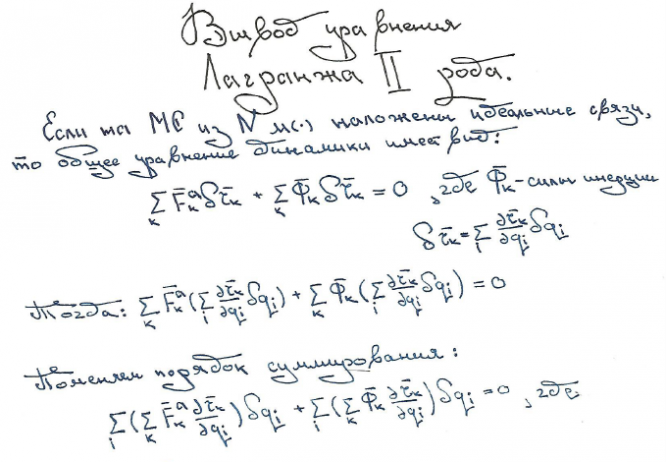 Вывод уравнения
Лагранжа II рода.
Если на МС из N м(·) наложены идеальные связи,
то общее уравнение динамики имеет вид:
∑ₖ F̄ₖᵃ δr̄ₖ + ∑ₖ Φ̄ₖ δr̄ₖ = 0 , где Φ̄ₖ-силы инерции
δr̄ₖ = ∑ᵢ ∂r̄ₖ/∂qᵢ δqᵢ
Тогда: ∑ₖ F̄ₖᵃ (∑ᵢ ∂r̄ₖ/∂qᵢ δqᵢ) + ∑ₖ Φ̄ₖ (∑ᵢ ∂r̄ₖ/∂qᵢ δqᵢ) = 0
Поменяем порядок суммирования:
∑ᵢ (∑ₖ F̄ₖᵃ ∂r̄ₖ/∂qᵢ) δqᵢ + ∑ᵢ (∑ₖ Φ̄ₖ ∂r̄ₖ/∂qᵢ) δqᵢ = 0 , где: